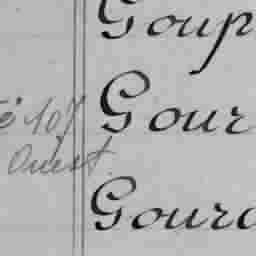 Goup
é 107 Gour
Ouest
Gourd